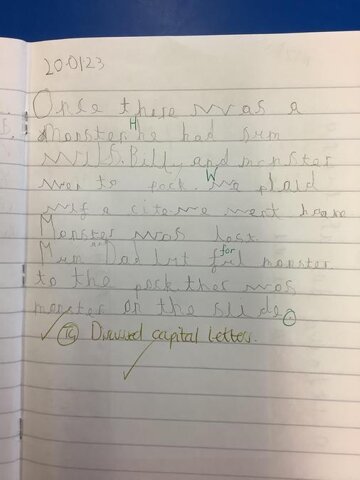 20.01.23
Once there was a
Monster. H he had sum
Milk. Billy and monster
wen to park. W we plaid
wif a cite we went hoam
Monster was lost.
Mum and Dad lut for monster
to the park ther was
monster on the slide.
TG Discussed capital letters.